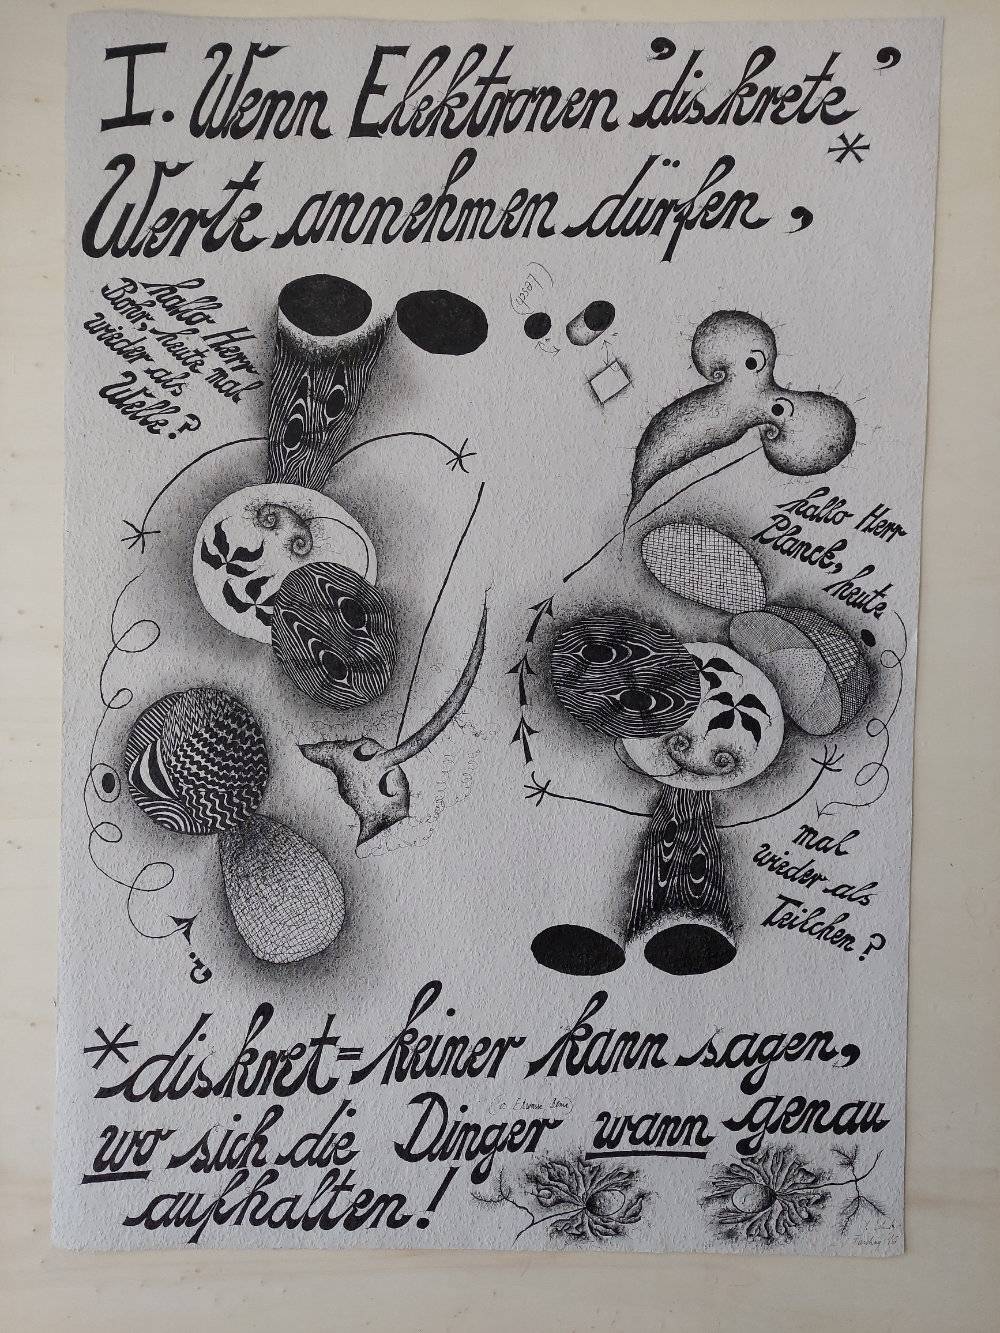 I. Wenn Elektronen 'diskrete'
*
Werte annehmen dürfen,
hallo, Herr
Bohr, heute mal
wieder als
Welle?
(Lesch)
hallo Herr
Planck, heute
mal
wieder als
Teilchen?
?
*diskret = keiner kann sagen,
wo sich die Dinger wann genau
aufhalten!